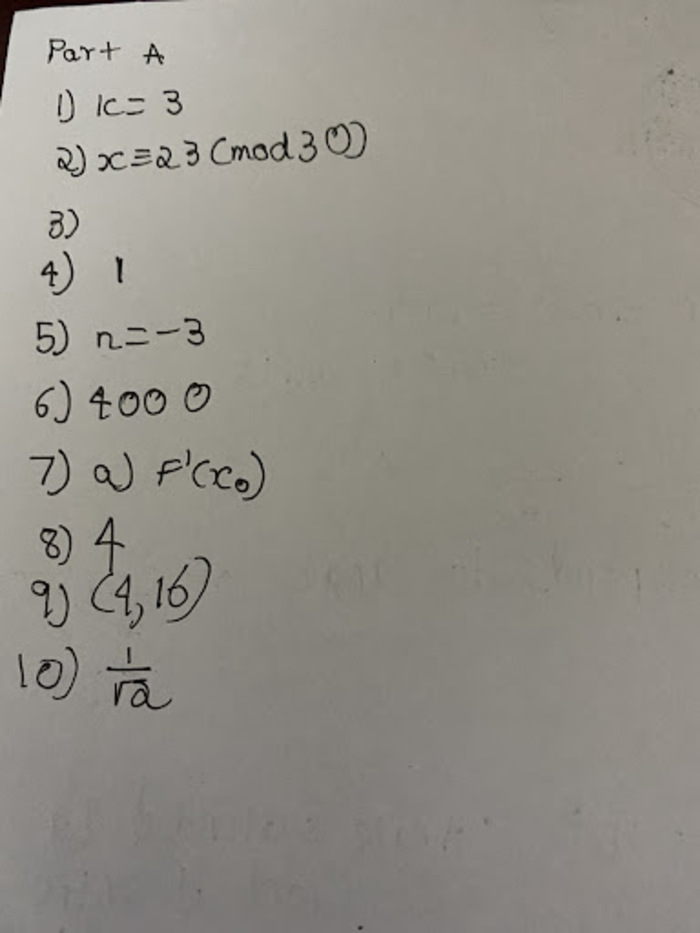 Part A
1) k= 3
2) x≡23 (mod 30)
3)
4) 1
5) n=-3
6) 4000
7) a) F'(x₀)
8) 4
9) (4,16)
10) 1/√2